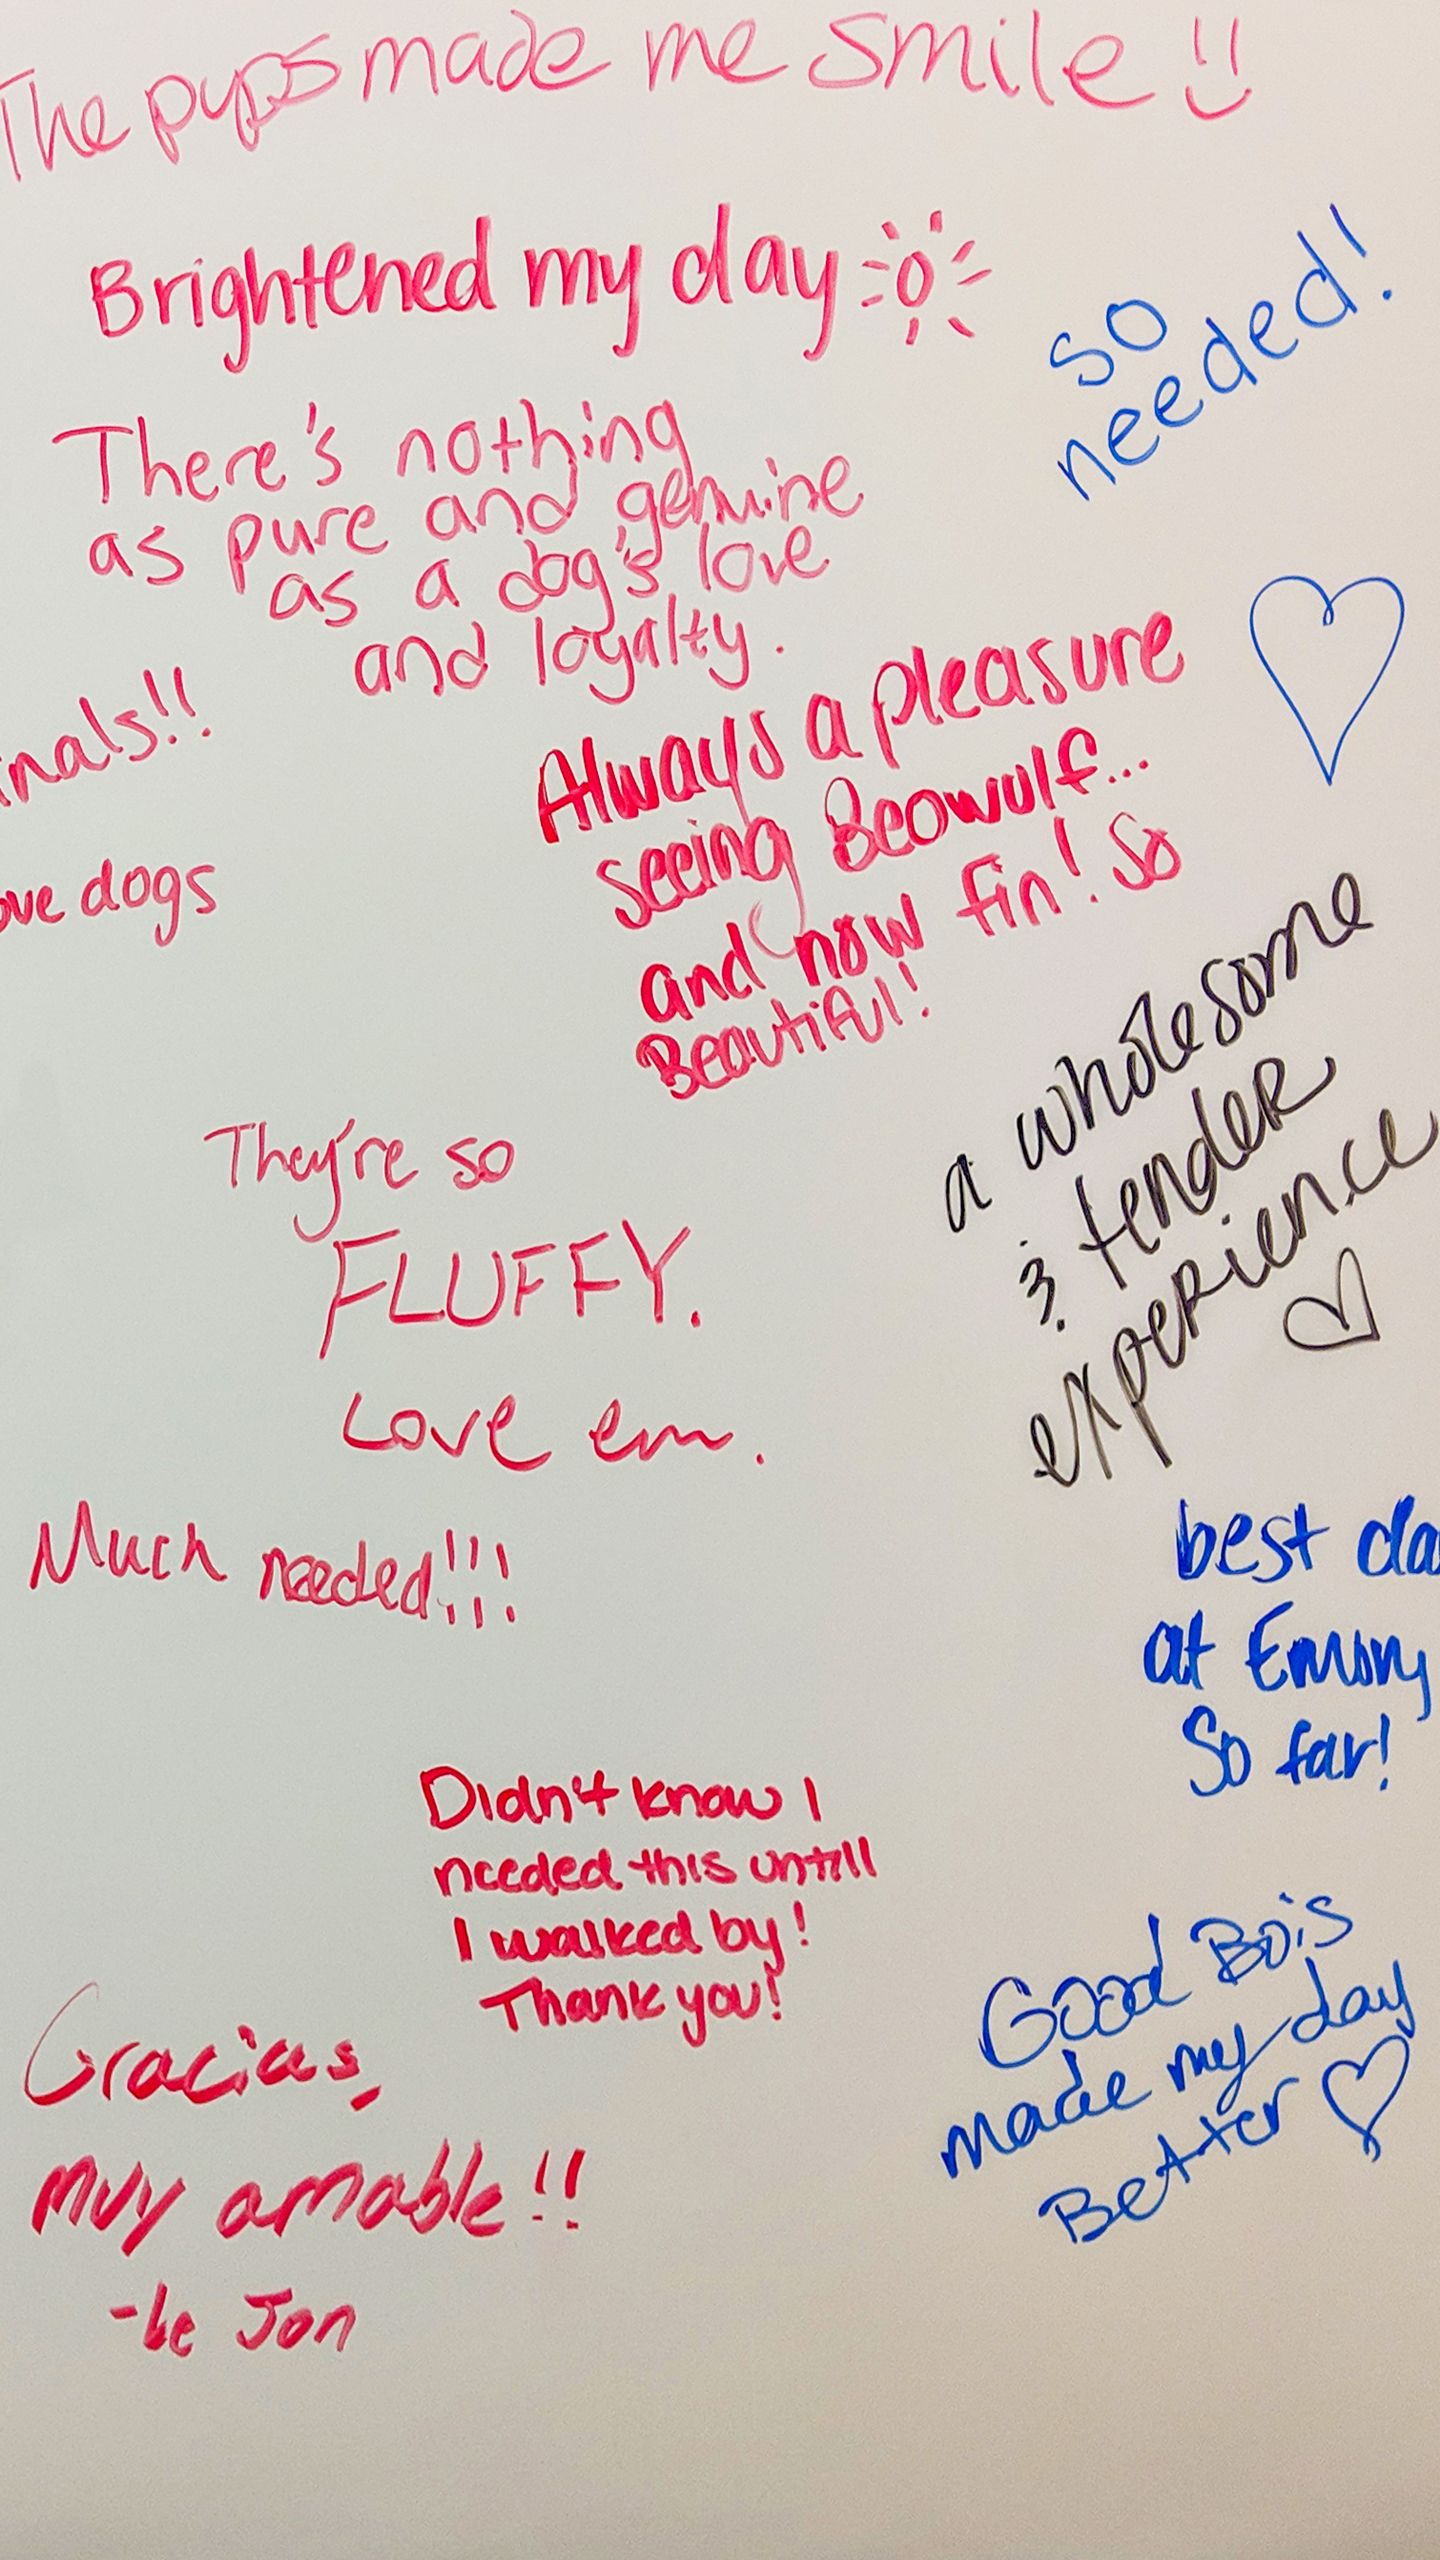 The pups made me smile !!
Brightened my day
so
needed!
There's nothing
as pure and genuine
as a dog's love
and loyalty.
Always a pleasure
seeing Beowulf...
and now fin! So
Beautiful!
dogs
a wholesome
& tender
experience
They're so
FLUFFY.
Love em.
Much needed!!!
best
at Emory
So far!
Didn't know I
needed this untill
I walked by!
Thank you!
Good Bois
made my day
Better
Gracias,
muy amable!!
Jon